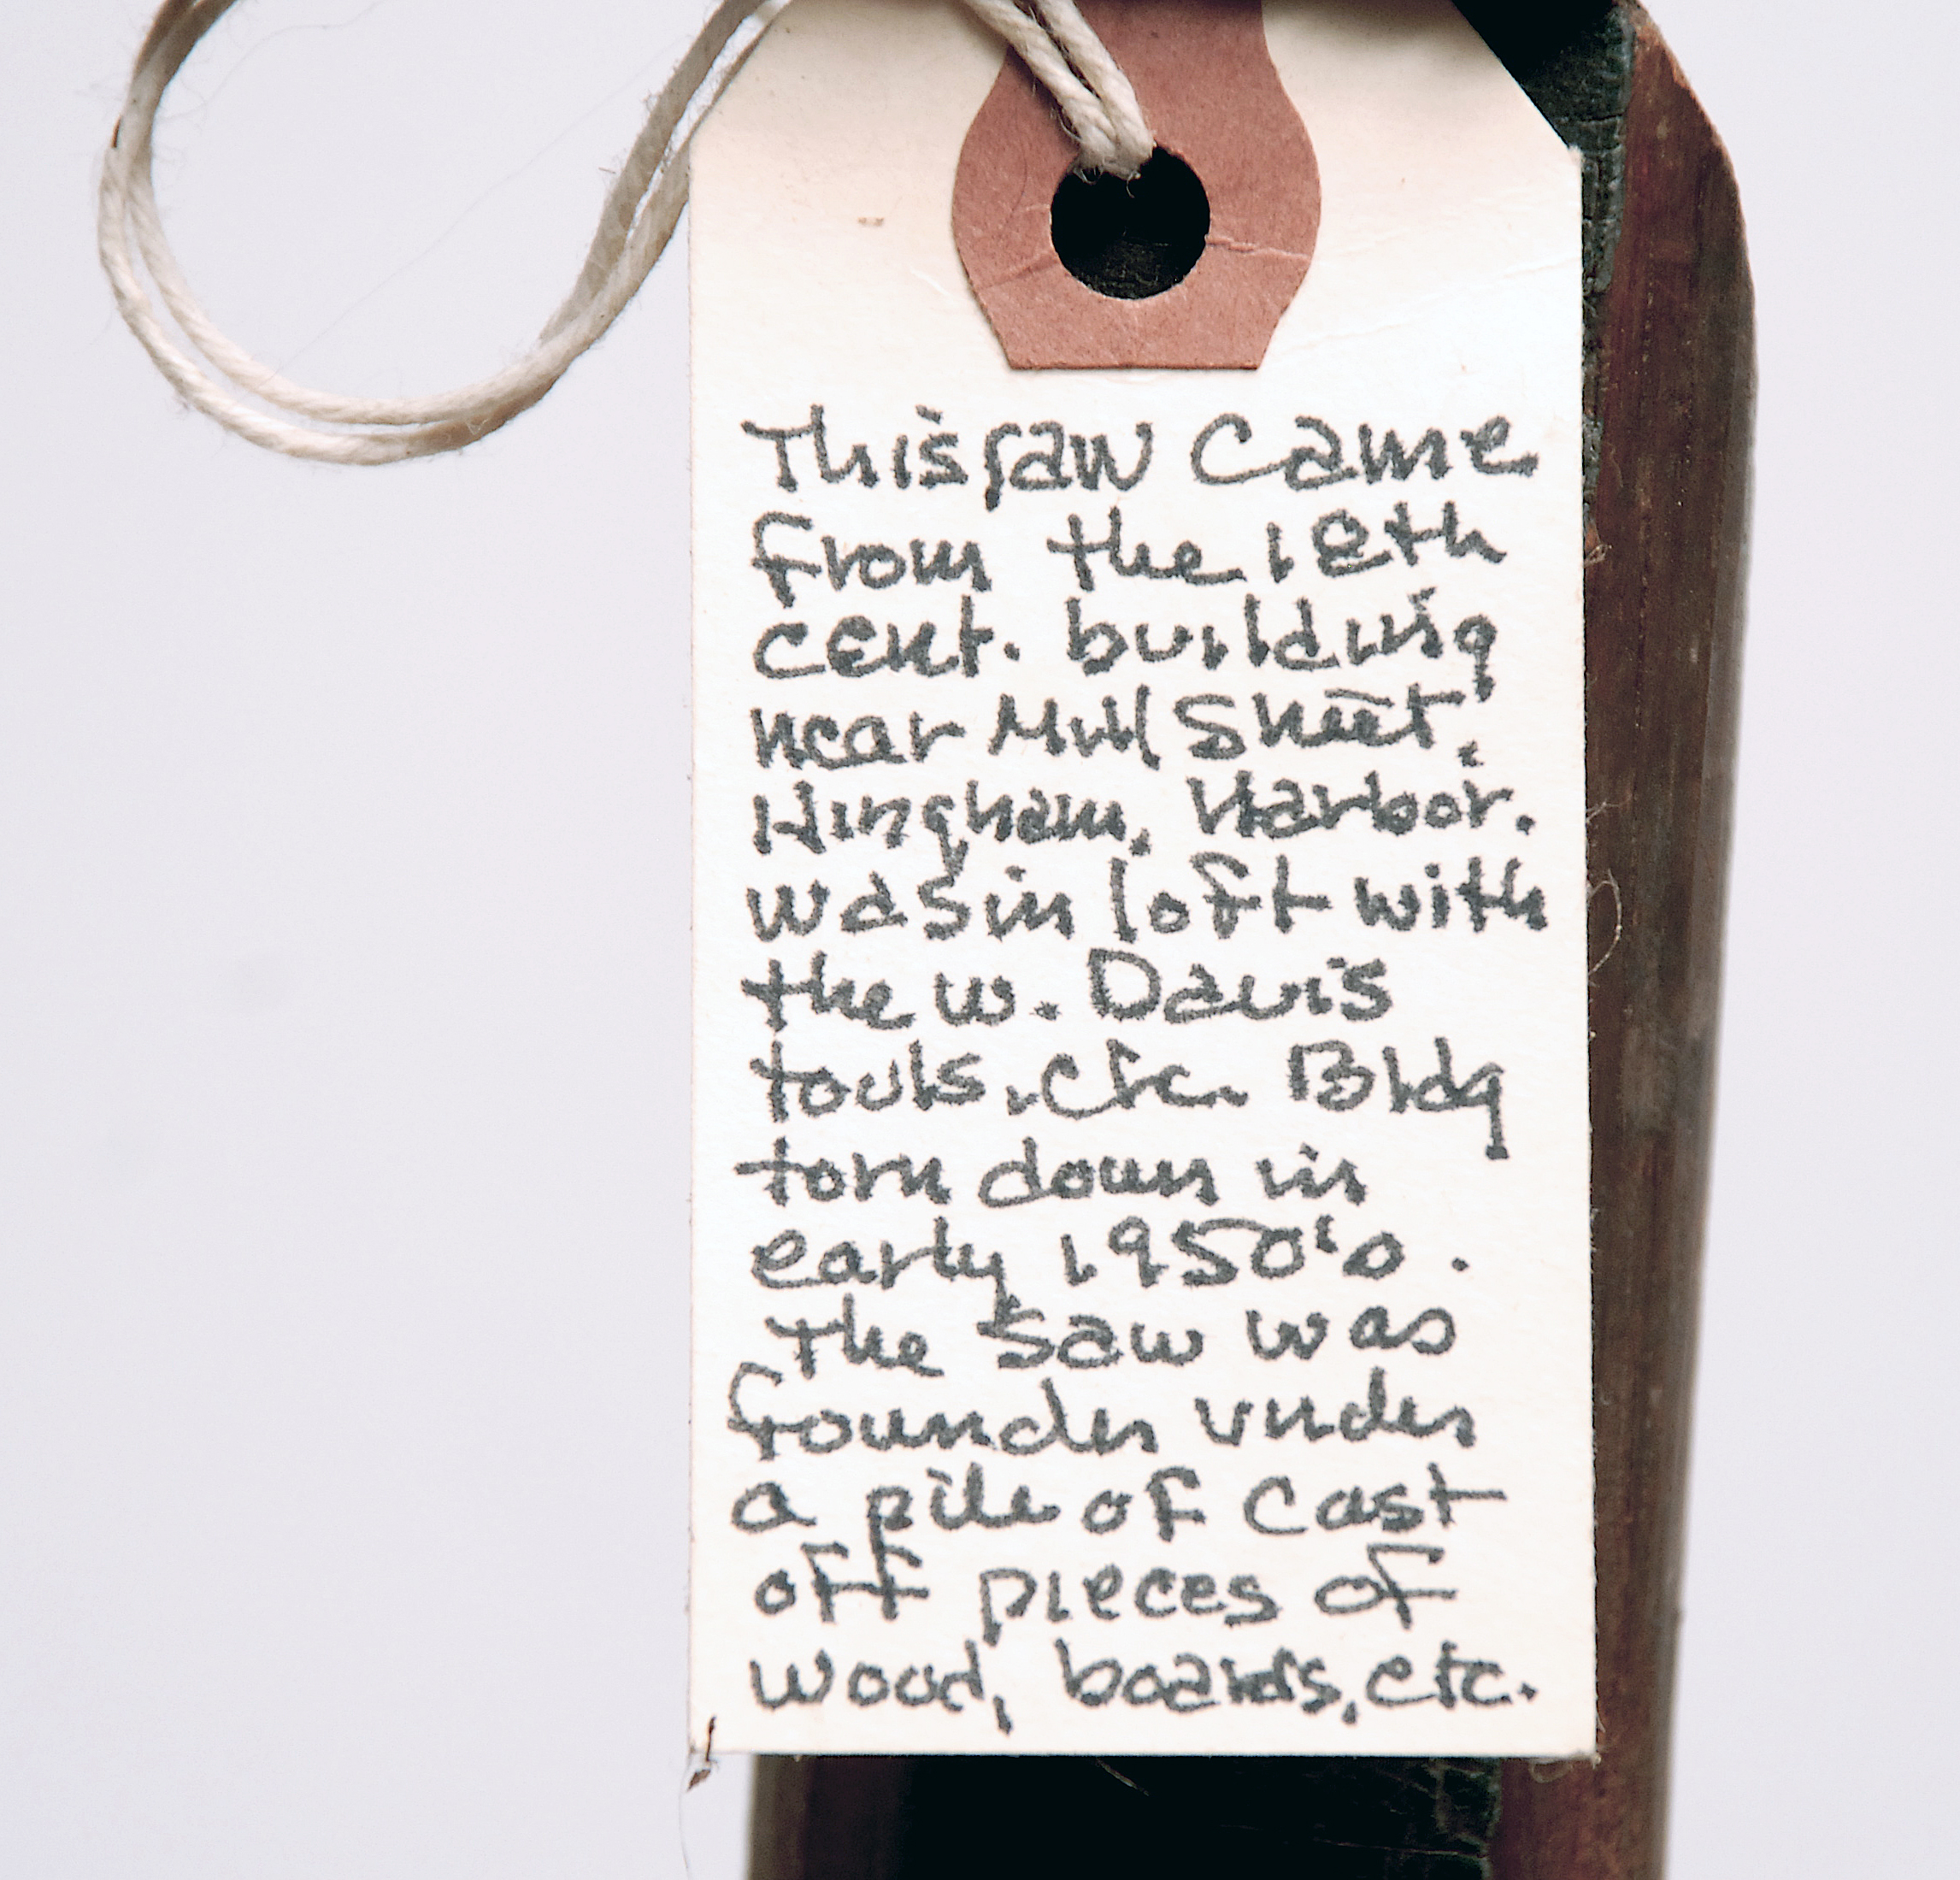 This saw came
from the 18th
cent. building
near Mill Street,
Hingham, Harbor.
was in loft with
the W. Davis
tools, etc. Bldg
torn down in
early 1950's.
The saw was
founder under
a pile of cast
off pieces of
wood, boards, etc.